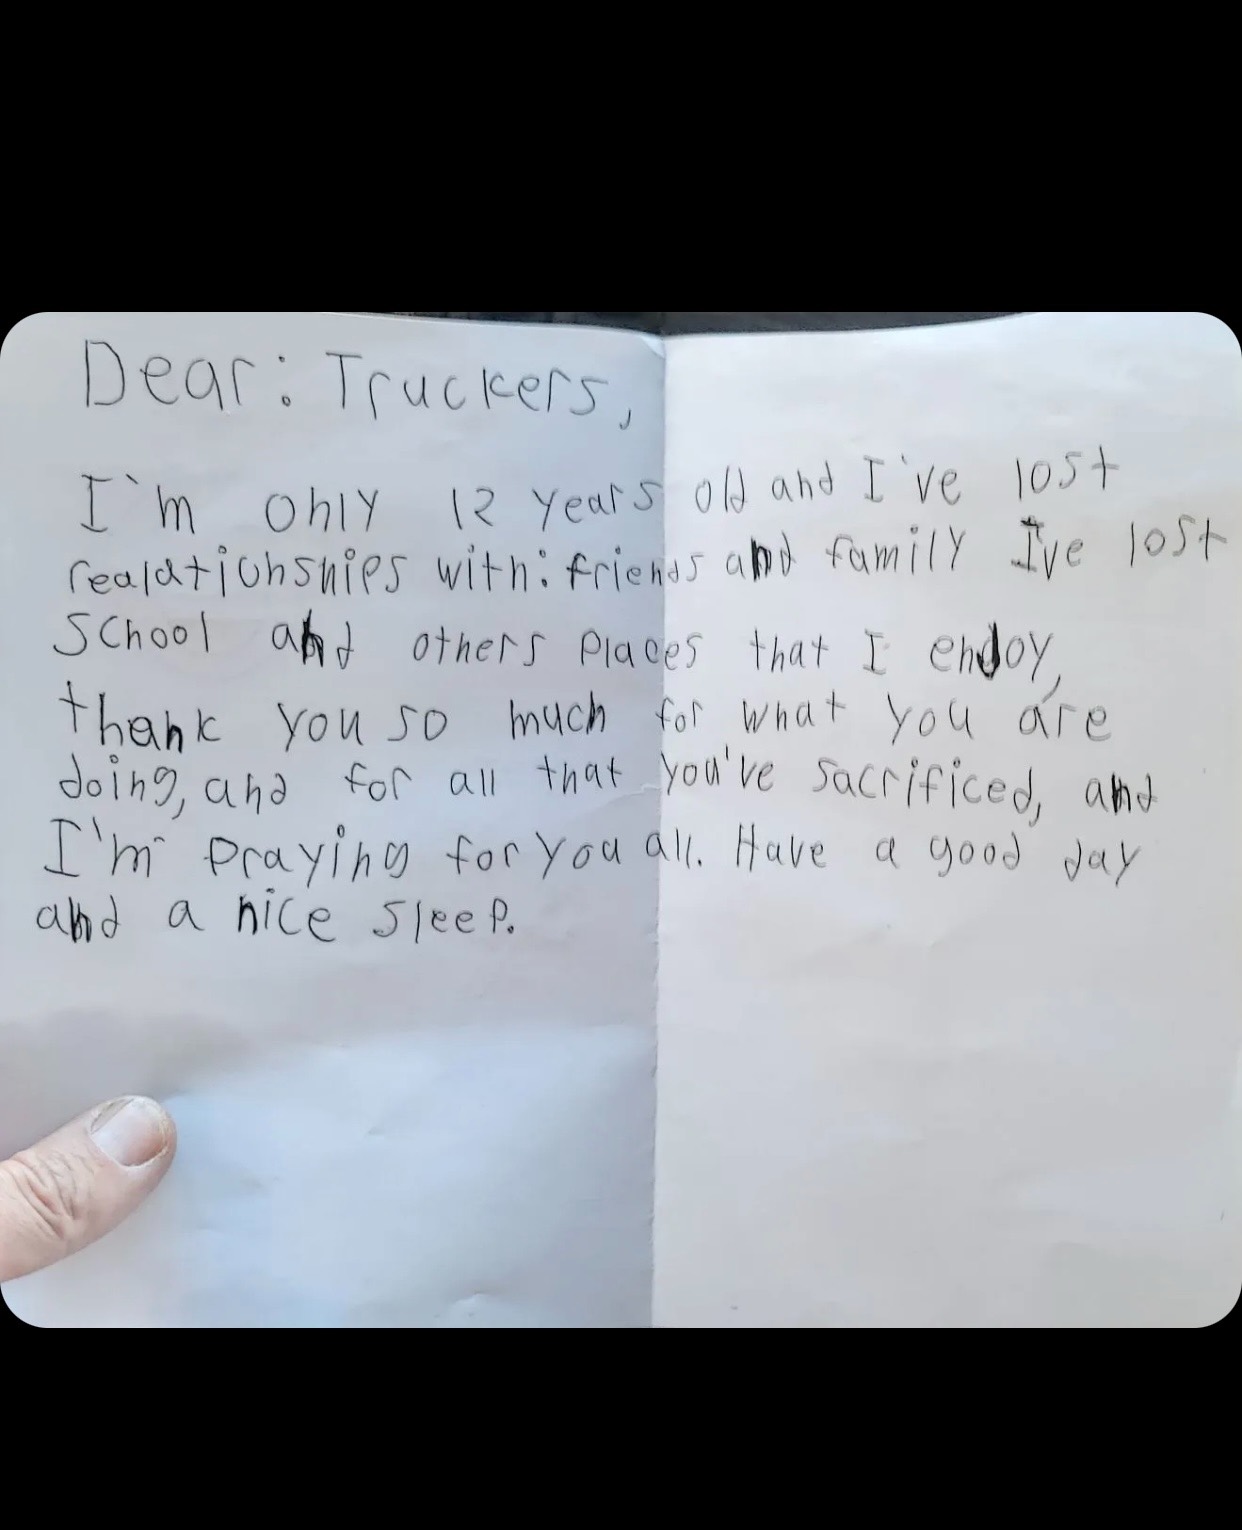 Dear: Truckers,
I'm only 12 years old and I've lost
realationships with: friends and family I've lost
school and others places that I enjoy,
thank you so much for what you are
doing, and for all that you've sacrificed, and
I'm praying for you all. Have a good day
and a nice sleep.